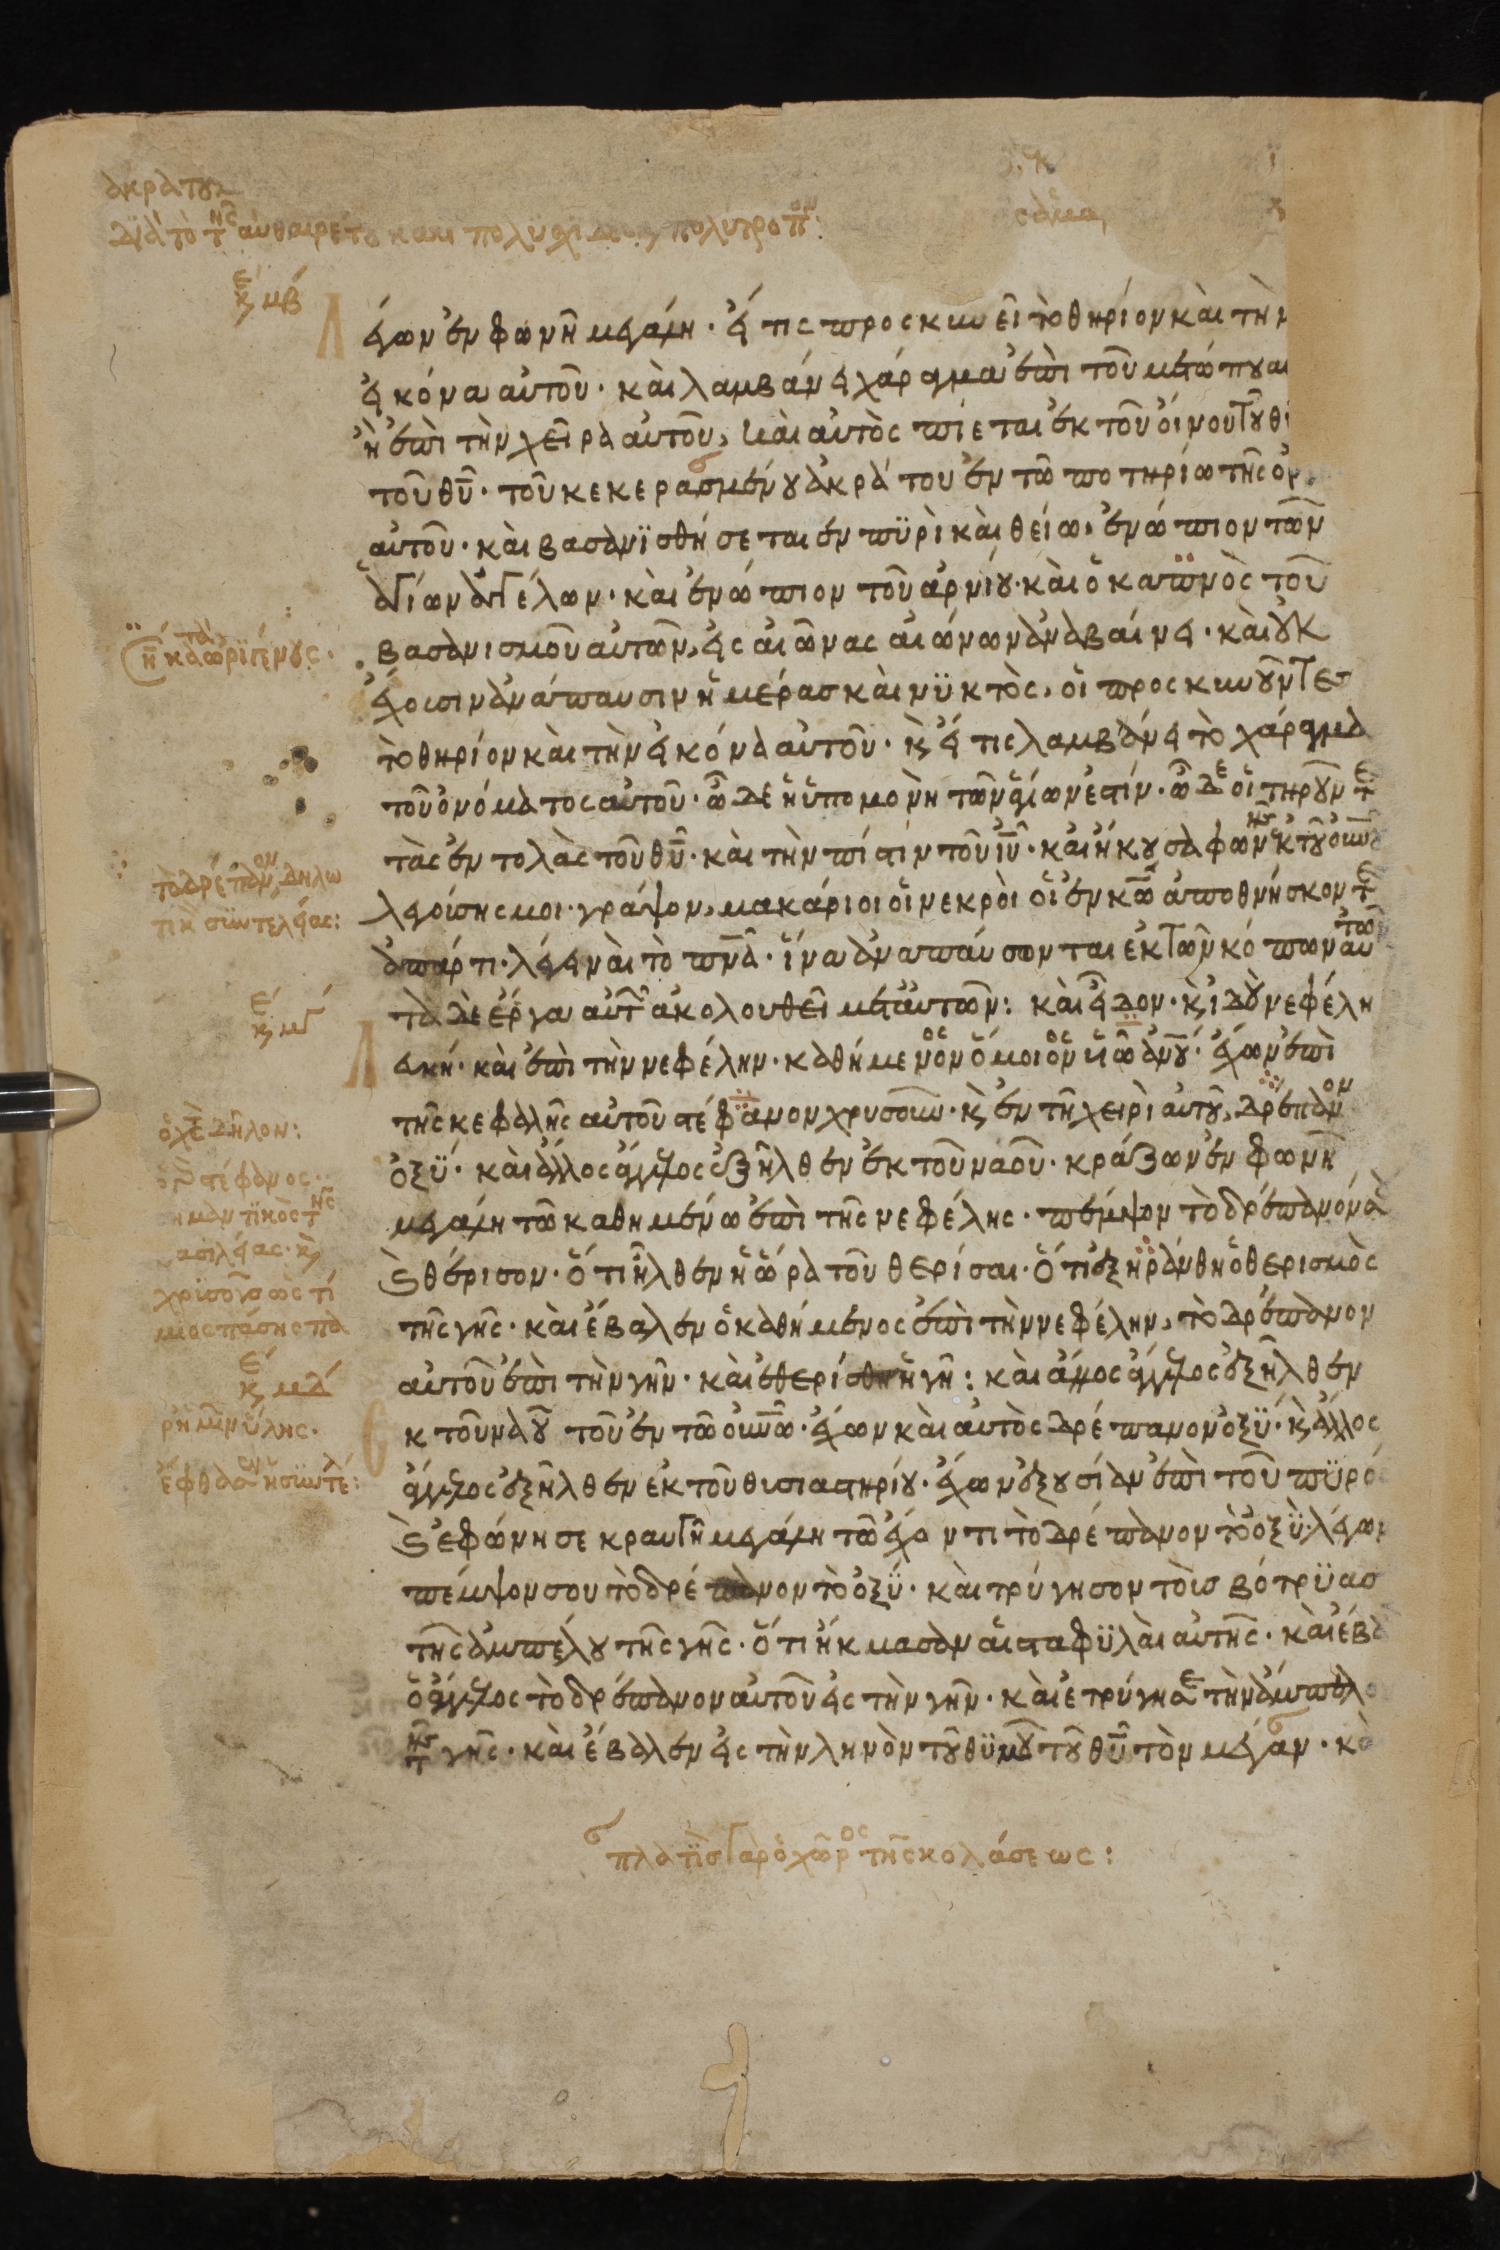 ἀκράτου
διὰ τὸ τῆς αὐθαιρέτου
κε μβ
λέγων ἐν φωνῆ μεγάλη· εἴ τις προσκυνεῖ τὸ θηρίον καὶ τὴν
εἰκόνα αὐτοῦ· καὶ λαμβάνει χάραγμα ἐπὶ τοῦ μετώπου αυ
ἢ ἐπὶ τὴν χεῖρα αὐτοῦ, καὶ αὐτὸς πίεται ἐκ τοῦ οἴνου τοῦ θυ
τοῦ θῡ· τοῦ κεκερασμένου ἀκράτου ἐν τῶ ποτηρίω τῆς ὀρ
αὐτοῦ· καὶ βασανϊσθήσεται ἐν πϋρὶ καὶ θείω, ἐνώπιον τῶν
ἁγίων ἀγγέλων· καὶ ἐνώπιον τοῦ ἀρνίου· καὶ ὁ καπνὸς τοῦ
βασανισμοῦ αὐτῶν, εἰς αἰῶνας αἰώνων ἀναβαίνει· καὶ οὐκ
ἔχοισιν ἀνάπαυσιν ἡμέρας καὶ νϋκτὸς, οἱ προσκυνοῦντες
τὸ θηρίον καὶ τὴν εἰκόνα αὐτοῦ· κ εἴ τις λαμβάνει τὸ χάραγμα
τοῦ ὀνόματος αὐτοῦ· ὧδε ἡ ὑπομονὴ τῶν ἁγίων ἐστίν· ὧδε οἱ τηροῦντε
τὰς ἐντολὰς τοῦ θῡ· καὶ τὴν πίστιν τοῦ ῑῡ· καὶ ἤκουσα φωνῆς ἐκ τοῦ οὐνοῦ
λεγοίσης μοι· γράψον, μακάριοι οἱ νεκροὶ οἱ ἐν κω ἀποθνήσκοντε
ἀπάρτι· λέγει ναὶ τὸ πνᾱ· ἵνα ἀναπαύσωνται ἐκ τῶν κόπων αὐτῶν
τὰ δὲ ἔργα αὐτῶν ἀκολουθεῖ μετ' αὐτῶν: καὶ εἶδον· κ ἰδοὺ νεφέλη
λευκή· καὶ ἐπὶ τὴν νεφέλην· καθήμενον ὅμοιον ϋιῶ ἀνου· ἔχων ἐπὶ
τῆς κεφαλῆς αὐτοῦ στέφανον χρυσοῦν· κ ἐν τῆ χειρὶ αὐτοῦ, δρέπανον
ὀξϋ· καὶ ἄλλος ἄγγελος ἐξῆλθεν ἐκ τοῦ ναοῦ· κράζων ἐν φωνῆ
μεγάλη τῶ καθημένω ἐπὶ τῆς νεφέλης· πέμψον τὸ δρέπανόν σου
κ θέρισον· ὅτι ἦλθεν ἡ ὥρα τοῦ θερίσαι· ὅτι ἐξηράνθη ὁ θερισμὸς
τῆς γῆς· καὶ ἔβαλεν ὁ καθήμενος ἐπὶ τὴν νεφέλην, τὸ δρέπανον
αὐτοῦ ἐπὶ τὴν γῆν· καὶ ἐθερίσθη ἡ γῆ: καὶ ἄλλος ἄγγελος ἐξῆλθεν
ἐκ τοῦ ναοῦ τοῦ ἐν τῶ οὐνῶ· ἔχων καὶ αὐτὸς δρέπανον ὀξϋ· κ ἄλλος
ἄγγελος ἐξῆλθεν ἐκ τοῦ θισιαστηρίου· ἔχων ἐξουσίαν ἐπὶ τοῦ πϋρό
κ ἐφώνησε κραυγῆ μεγάλη τῶ ἔχοντι τὸ δρέπανον τὸ ὀξϋ· λέγων
πέμψον σου τὸ δρέπανον τὸ ὀξϋ· καὶ τρύγησον τοὶς βότρϋας
τῆς ἀμπέλου τῆς γῆς· ὅτι ἤκμασαν αἱ σταφϋλαὶ αὐτῆς· καὶ ἔβα
ὁ ἄγγελος τὸ δρέπανον αὐτοῦ εἰς τὴν γῆν· καὶ ἐτρύγησε τὴν ἄμπελο
τῆς γῆς· καὶ ἔβαλεν εἰς τὴν ληνὸν τοῦ θϋμοῦ τοῦ θῡ τὸν μέγαν· κα
τὸ δρέπανον, δηλω
τικὴ σϋντελείας:
κε μγ
δῆλον:
ὁ στέφανος
κε μδ
πλατϊς γὰρ ὁ χῶρος τῆς κολάσεως: